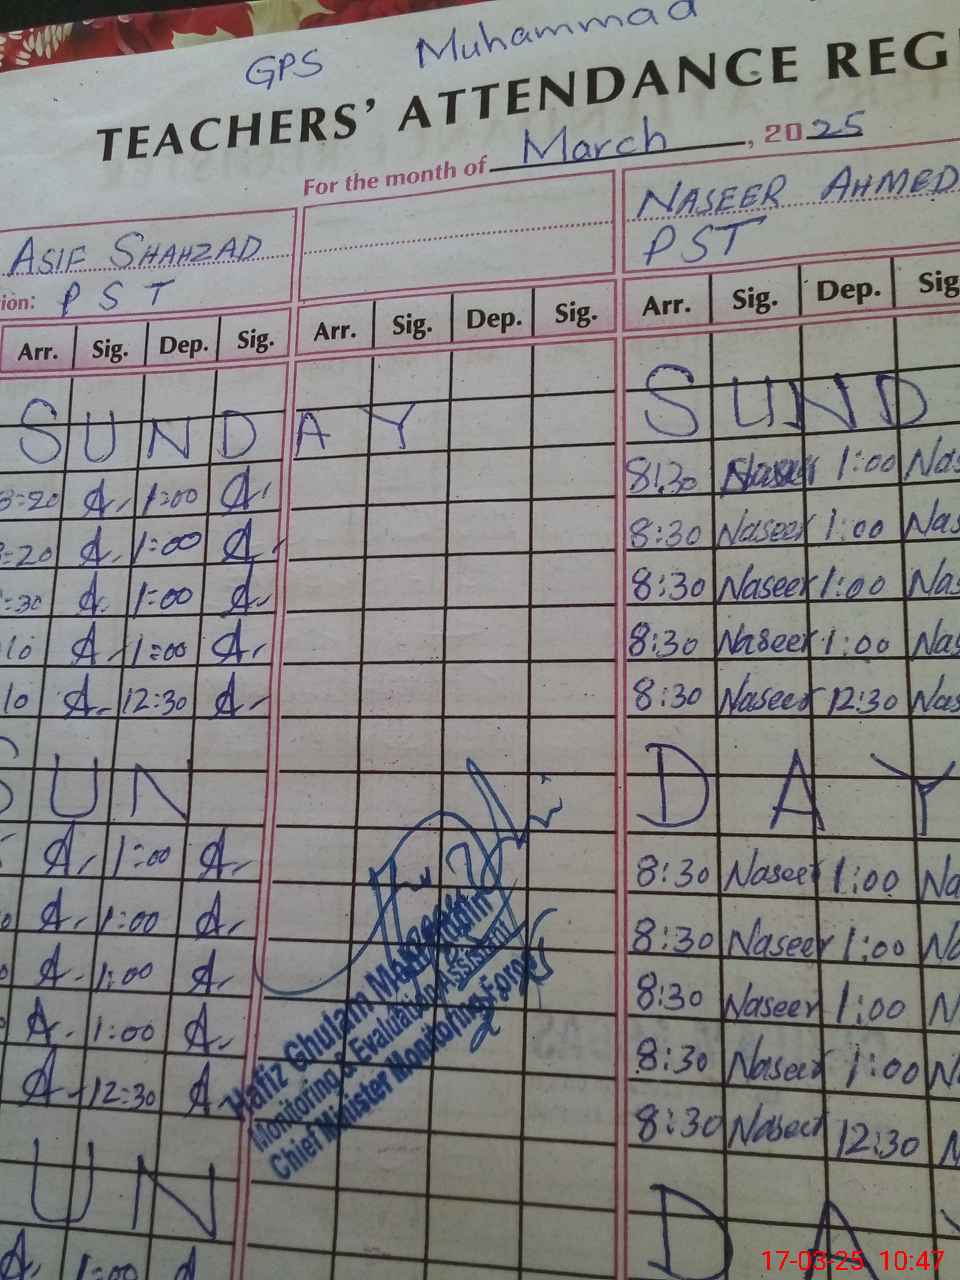 GPS Muhammad
TEACHERS' ATTENDANCE REG
For the month of March, 2025
ASIF SHAHZAD NASEER AHMED
PST PST
Arr. Sig. Dep. Sig. Arr. Sig. Dep. Sig. Arr. Sig. Dep. Sig
SUNDAY SUND
8=20 A. 1:00 A. 8:30 Naseer 1:00 Nas
=20 A. 1:00 A. 8:30 Naseer 1:00 Nas
=30 A. 1:00 A. 8:30 Naseer 1:00 Nas
10 A. 1:00 A. 8:30 Naseer 1:00 Nas
10 A. 12:30 A. 8:30 Naseer 12:30 Nas
SUN DAY
A. 1:00 A. 8:30 Naseer 1:00 Na
A. 1:00 A. 8:30 Naseer 1:00 Na
A. 1:00 A. 8:30 Naseer 1:00 N
A. 1:00 A. 8:30 Naseer 1:00 N
A. 12:30 A. 8:30 Naseer 12:30 N
Hafiz Ghulam
Monitoring & Evaluation Assistant
Chief Minister Monitoring Force
UN DA
A. 1:00 A
17-03-25 10:47